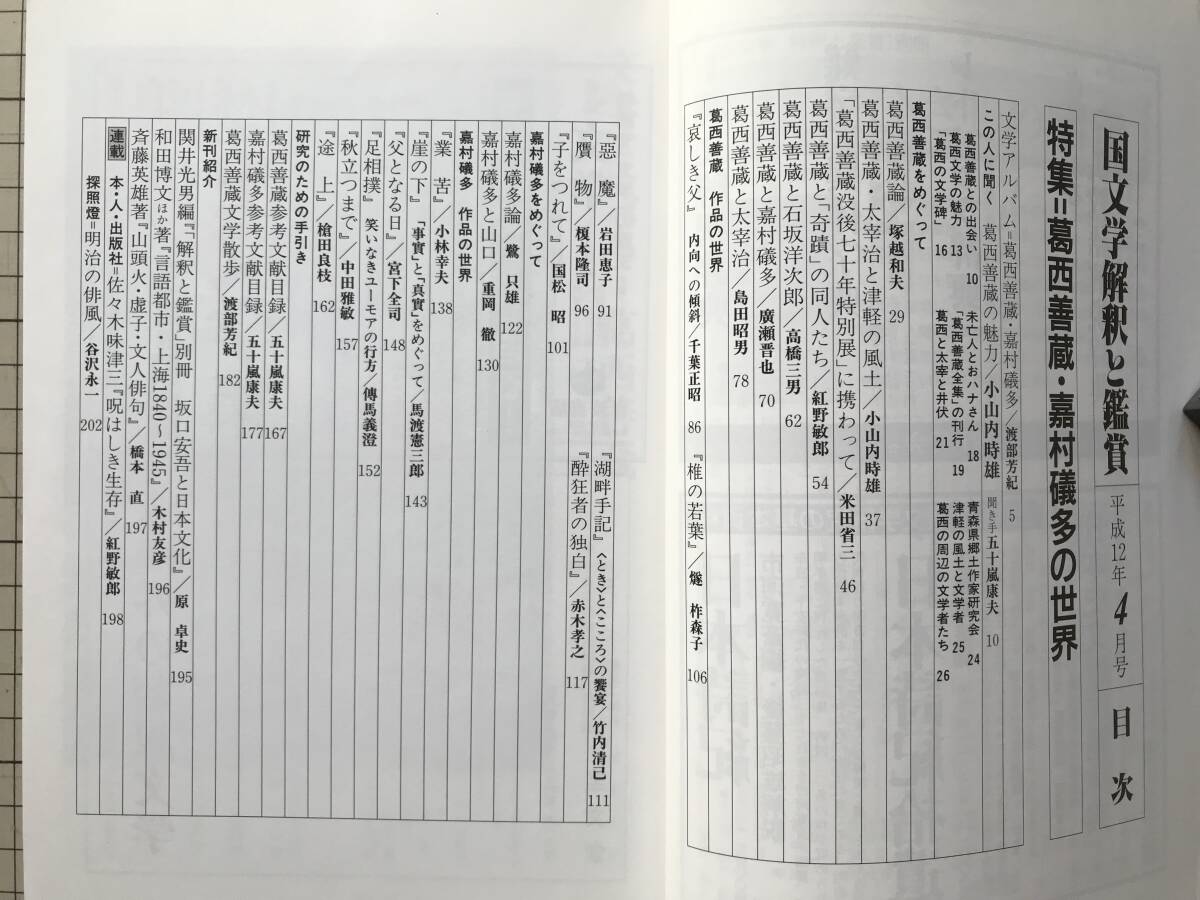 国文学解釈と鑑賞 平成12年4月号 目次
特集=葛西善蔵・嘉村礒多の世界
文学アルバム=葛西善蔵・嘉村礒多/渡部芳紀 5
この人に聞く 葛西善蔵の魅力/小山内時雄 聞き手 五十嵐康夫 10
葛西善蔵との出会い 10
葛西文学の魅力 13
「葛西の文学碑」 16
未亡人とおハナさん 18
「葛西善蔵全集」の刊行 19
葛西と太宰と井伏 21
青森県郷土作家研究会 24
津軽の風土と文学者 25
葛西の周辺の文学者たち 26
葛西善蔵をめぐって
葛西善蔵論/塚越和夫 29
葛西善蔵・太宰治と津軽の風土/小山内時雄 37
「葛西善蔵没後七十年特別展」に携わって/米田省三 46
葛西善蔵と「奇蹟」の同人たち/紅野敏郎 54
葛西善蔵と石坂洋次郎/高橋三男 62
葛西善蔵と嘉村礒多/廣瀬晋也 70
葛西善蔵と太宰治/島田昭男 78
葛西善蔵 作品の世界
『哀しき父』 内向への傾斜/千葉正昭 86
『椎の若葉』/燧 柞森子 106
『惡 魔』/岩田恵子 91
『湖畔手記』〈とき〉と〈こころ〉の饗宴/竹内清己 111
『贋 物』/榎本隆司 96
『酔狂者の独白』/赤木孝之 117
『子をつれて』/国松 昭 101
嘉村礒多をめぐって
嘉村礒多論/鷺 只雄 122
嘉村礒多と山口/重岡 徹 130
嘉村礒多 作品の世界
『業 苦』/小林幸夫 138
『崖の下』 「事實」と「真實」をめぐって/馬渡憲三郎 143
『父となる日』/宮下全司 148
『足相撲』 笑いなきユーモアの行方/傳馬義澄 152
『秋立つまで』/中田雅敏 157
『途 上』/槍田良枝 162
研究のための手引き
葛西善蔵参考文献目録/五十嵐康夫 167
嘉村礒多参考文献目録/五十嵐康夫 177
葛西善蔵文学散歩/渡部芳紀 182
新刊紹介
関井光男編『「解釈と鑑賞」別冊 坂口安吾と日本文化』/原 卓史 195
和田博文ほか著『言語都市・上海1840〜1945』/木村友彦 196
斉藤英雄著『山頭火・虚子・文人俳句』/橋本 直 197
連載 本・人・出版社=佐々木味津三『呪はしき生存』/紅野敏郎 198
探照燈=明治の俳風/谷沢永一 202